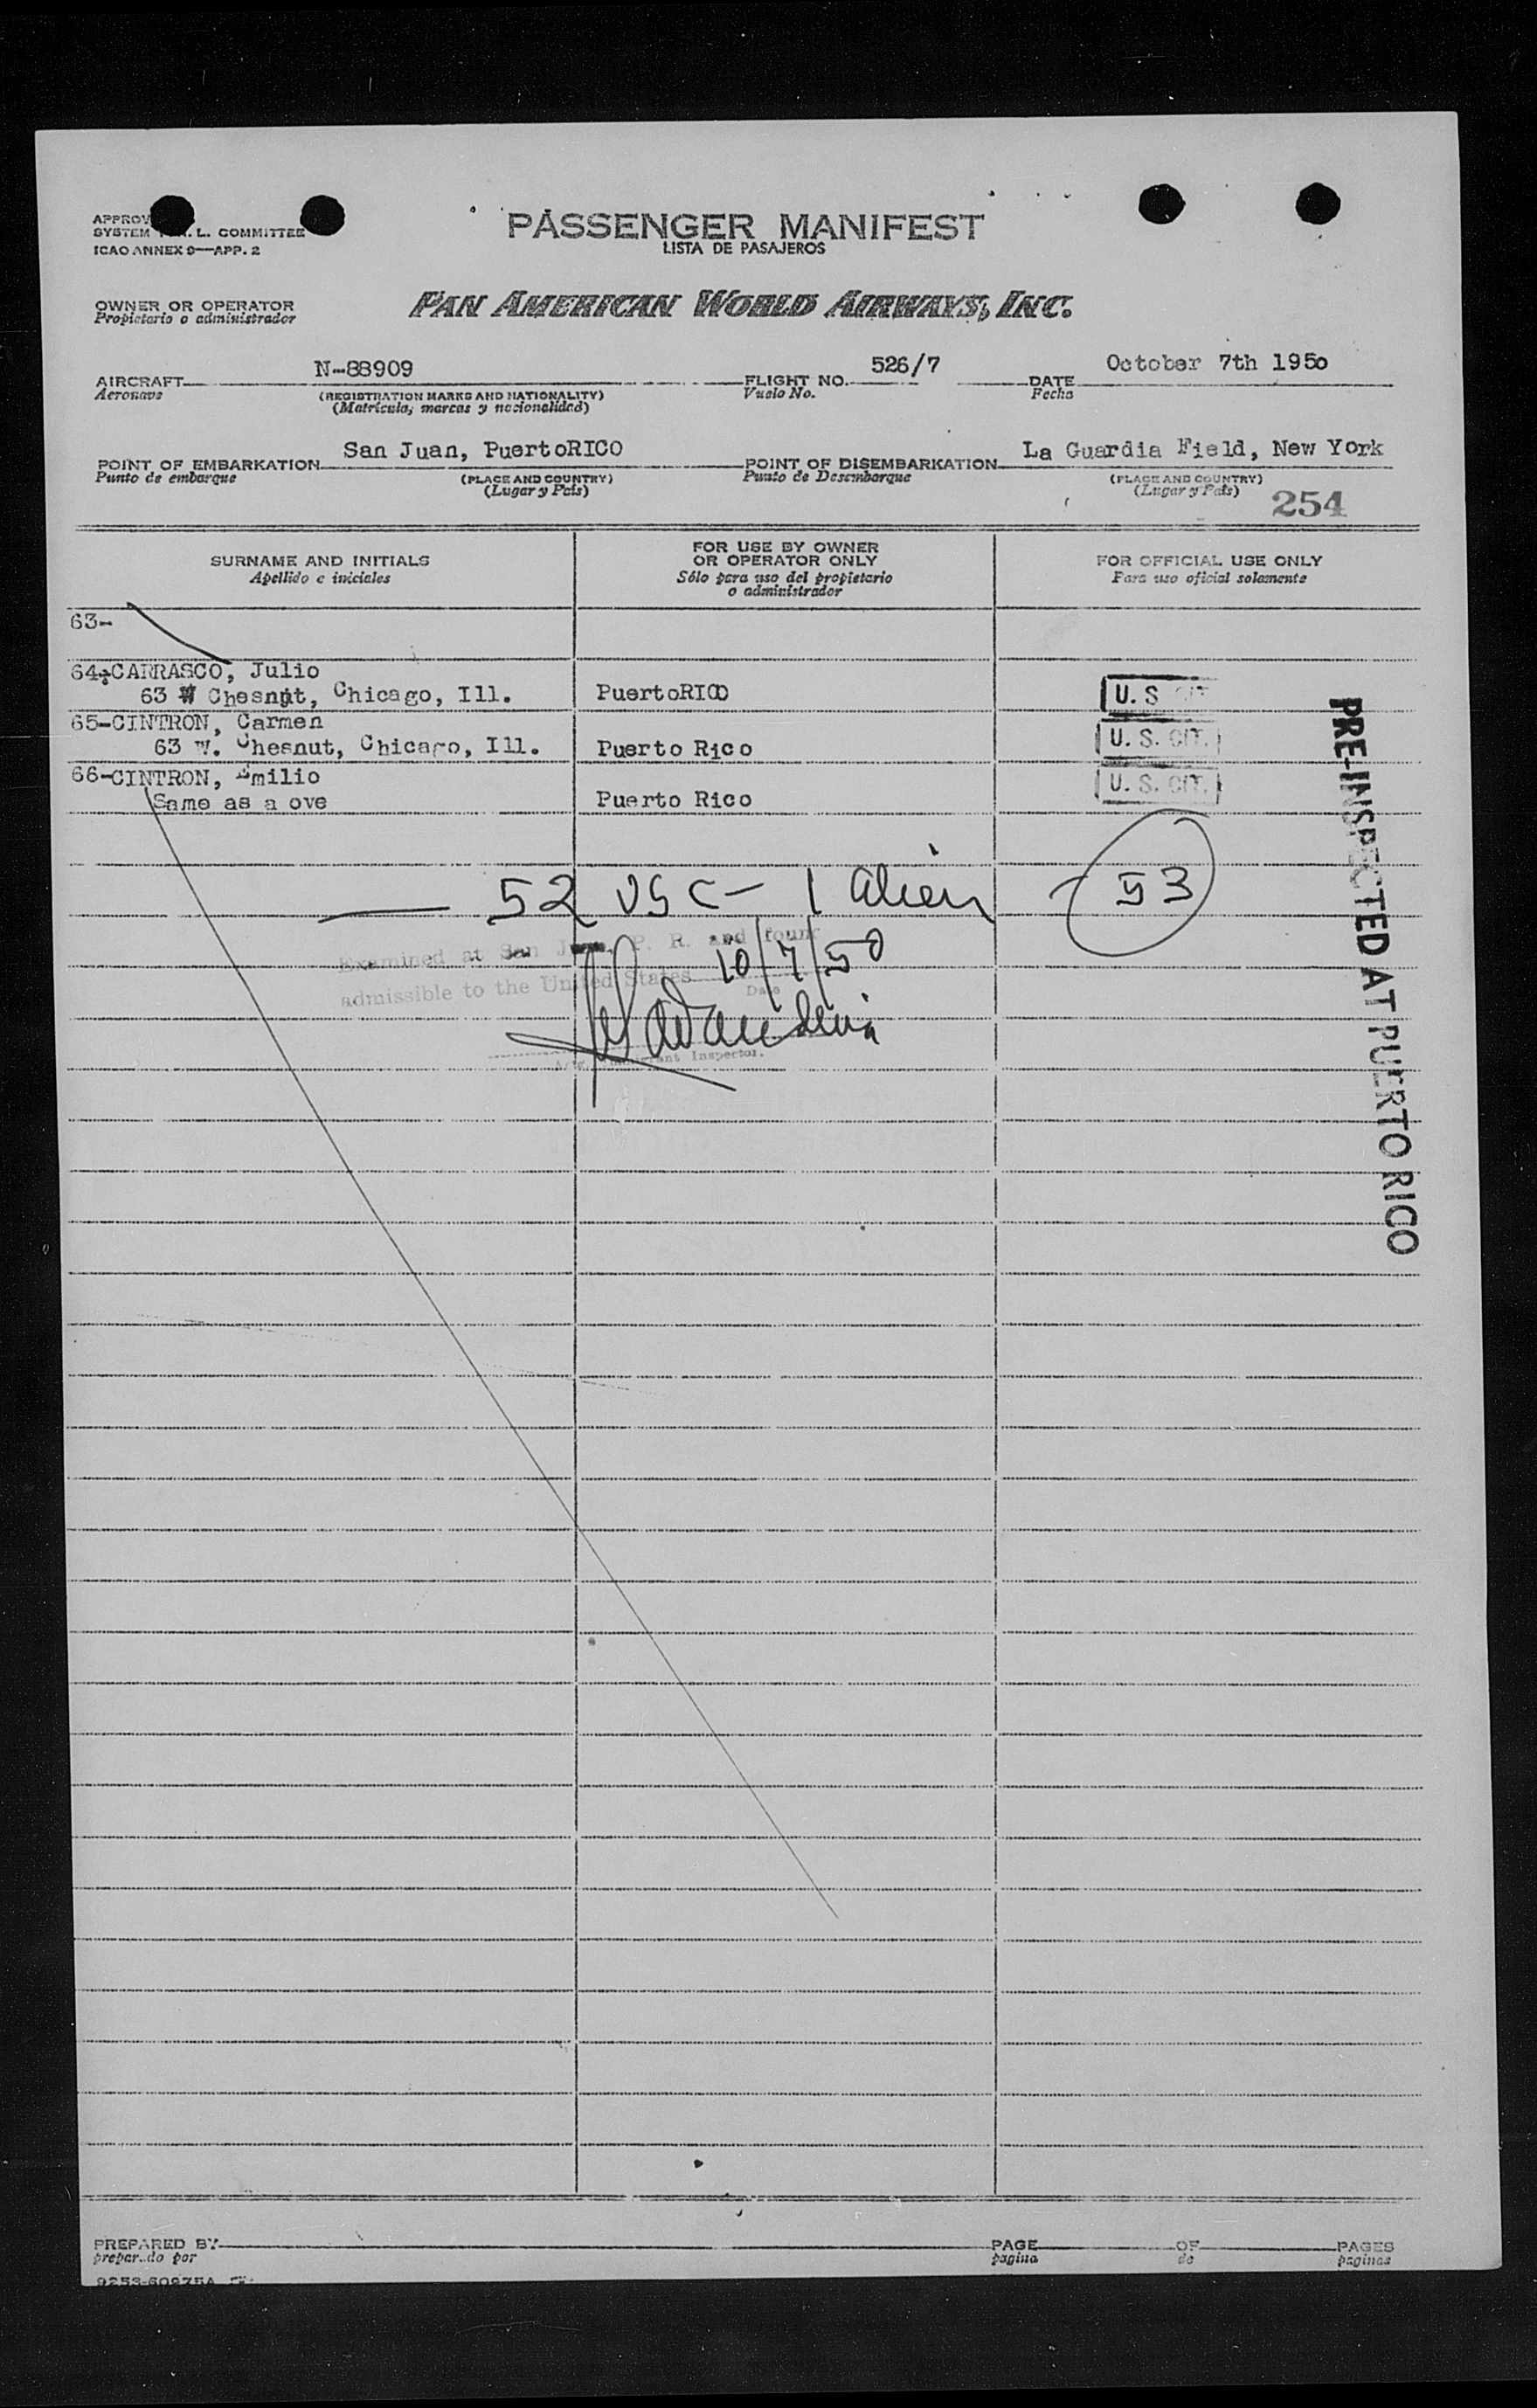 APPROV
SYSTEM L. COMMITTEE
ICAO ANNEX 9—APP. 2
PASSENGER MANIFEST
LISTA DE PASAJEROS
OWNER OR OPERATOR
Propietario o administrador
PAN AMERICAN WORLD AIRWAYS, INC.
AIRCRAFT N-88909 FLIGHT NO. 526/7 DATE October 7th 1950
Aeronave (REGISTRATION MARKS AND NATIONALITY) Vuelo No. Fecha
(Matrícula, marcas y nacionalidad)
POINT OF EMBARKATION San Juan, PuertoRICO POINT OF DISEMBARKATION La Guardia Field, New York
Punto de embarque (PLACE AND COUNTRY) Punto de Desembarque (PLACE AND COUNTRY)
(Lugar y País) (Lugar y País) 254
SURNAME AND INITIALS
Apellido e iniciales
FOR USE BY OWNER
OR OPERATOR ONLY
Sólo para uso del propietario
o administrador
FOR OFFICIAL USE ONLY
Para uso oficial solamente
63-
64-CARRASCO, Julio
63 W Chesnut, Chicago, Ill. PuertoRICO U. S. CIT.
65-CINTRON, Carmen
63 W. Chesnut, Chicago, Ill. Puerto Rico U. S. CIT.
66-CINTRON, Emilio
Same as a ove Puerto Rico U. S. CIT.
52 USC - 1 alien 53
Examined at San Juan, P. R. and found
admissible to the United States 10/7/50
Date
Immigrant Inspector.
PRE-INSPECTED AT PUERTO RICO
PREPARED BY PAGE OF PAGES
preparado por página de páginas
9253-60875A